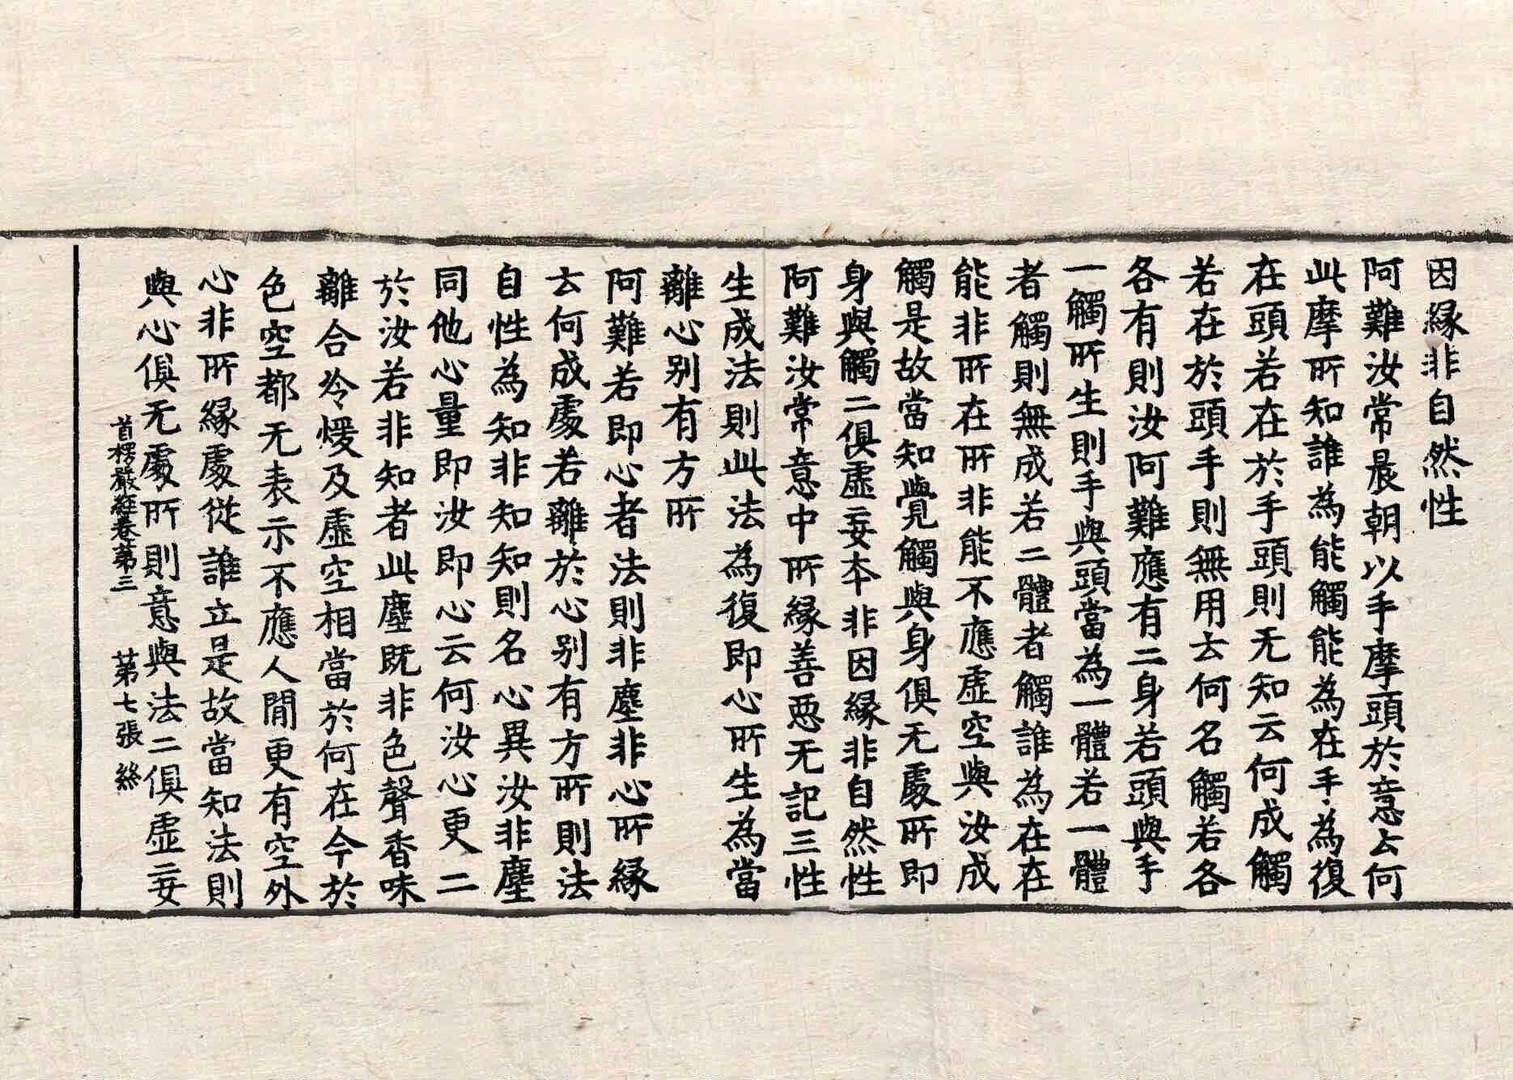 因緣非自然性
阿難汝常晨朝以手摩頭於意云何
此摩所知誰為能觸能為在手為復
在頭若在於手頭則无知云何成觸
若在於頭手則無用云何名觸若各
各有則汝阿難應有二身若頭與手
一觸所生則手與頭當為一體若一體
者觸則無成若二體者觸誰為在在
能非所在所非能不應虛空與汝成
觸是故當知覺觸與身俱无處所即
身與觸二俱虛妄本非因緣非自然性
阿難汝常意中所緣善惡无記三性
生成法則此法為復即心所生為當
離心別有方所
阿難若即心者法則非塵非心所緣
云何成處若離於心別有方所則法
自性為知非知知則名心異汝非塵
同他心量即汝即心云何汝心更二
於汝若非知者此塵既非色聲香味
離合冷煖及虛空相當於何在今於
色空都无表示不應人間更有空外
心非所緣處從誰立是故當知法則
與心俱无處所則意與法二俱虛妄
首楞嚴經卷第三　第七張　終